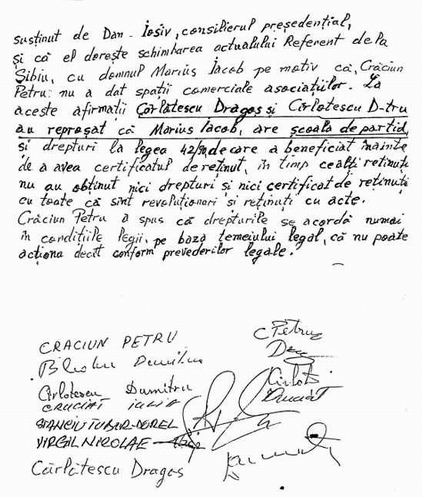 susținut de Dan - Iosiv, consilierul președențial,
și că el dorește schimbarea actualului Referent de la
Sibiu, cu domnul Marius Iacob pe motiv că, Crăciun
Petru nu a dat spații comerciale asociaților. La
aceste afirmații Cârlățescu Dragoș și Cârlățescu D-tru
au reproșat că Marius Iacob, are școala de partid,
și drepturi la legea 42/90 de care a beneficiat înainte
de a avea certificatul de reținut, în timp cealți reținuți
nu au obținut nici drepturi și nici certificat de reținuți
cu toate că sînt revoluționari și reținuți cu acte.
Crăciun Petru a spus că drepturile se acordă numai
în condițiile legii, pe baza temeiului legal, că nu poate
acționa decît conform prevederilor legale.
CRACIUN PETRU CPetru
Dumitru
Cârlatescu Dumitru Cârlat
CRUCIAT IULIU Cruciat
STANCIU TUDOR-VIOREL
VIRGIL NICOLAE
Cârlatescu Dragoș